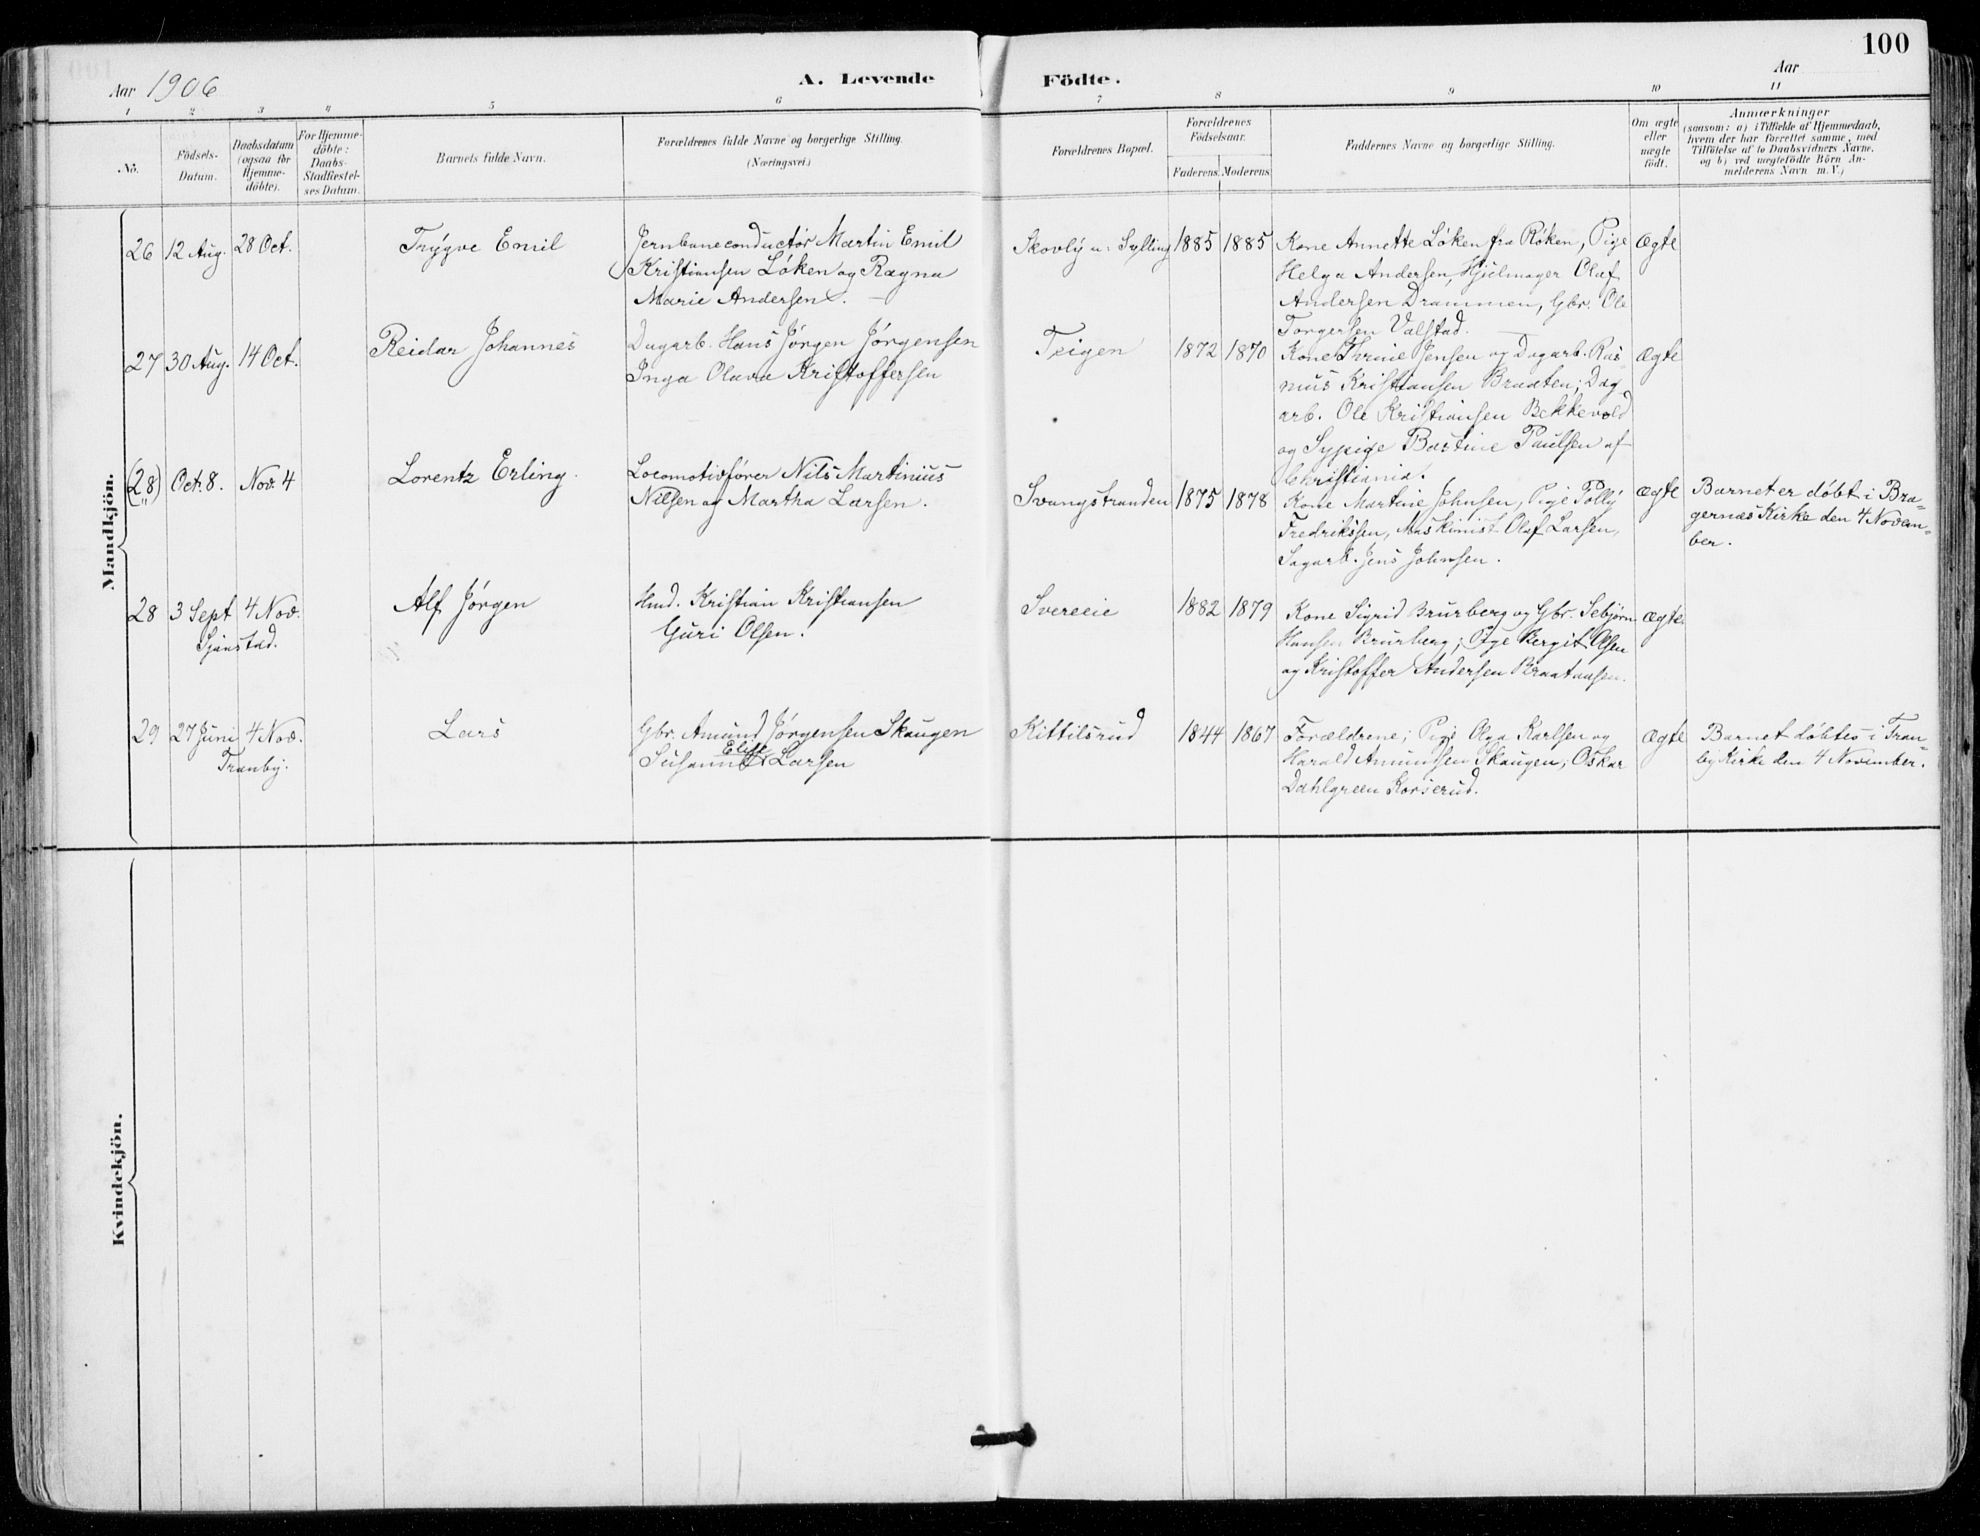 100
Aar 1906
A. Levende Födte.
Aar
1 2 3 4 5 6 7 8 9 10 11
No.
Födsels-
Datum.
Daabsdatum
(ogsaa for
Hjemme-
döbte).
For Hjemme-
döbte:
Daabs-
Stadfæstel-
ses Datum.
Barnets fulde Navn.
Forældrenes fulde Navne og borgerlige Stilling.
(Næringsvei)
Forældrenes Bopæl.
Forældrenes
Födselsaar.
Faderens. Moderens.
Faddernes Navne og borgerlige Stilling.
Om ægte
eller
uægte
födt.
Anmærkninger
(saasom: a) i Tilfælde af Hjemmedaab,
hvem der har forrettet samme, med
Tilföielse af to Daabsvidners Navne,
og b) ved uægtefödte Börn An-
melderens Navn m. V.)
Mandkjön.
26 12 Aug. 28 Oct.
Trygve Emil
Jernbaneconductör Martin Emil
Kristiansen Löken og Ragna
Marie Andersen.
Skovly u. Sylling
1885 1885
Kone Annette Löken fra Röken, Pige
Helga Andersen, Hjulmager Olaf
Andersen Drammen, Gbr. Ole
Torgersen Valstad.
Ægte
27 30 Aug. 14 Oct.
Reidar Johannes
Dagarb. Hans Jörgen Jörgensen
Inga Olava Kristoffersen
Teigen
1872 1870
Kone Thrine Jensen og Dagarb. Ras-
mus Kristiansen Braaten; Dag-
arb. Ole Kristiansen Bekkevold
og Sypige Bastine Paulsen af
Christiania.
Ægte
(28) Oct. 8. Nov. 4
Lorentz Erling.
Locomotivförer Nils Martinius
Nilsen og Martha Larsen.
Svangstranden
1875 1878
Kone Martine Johnsen, Pige Polly
Fredriksen, Maskinist Olaf Larsen,
Sagarb. Jens Johnsen.
Ægte
Barnet er döbt i Bra-
gernæs Kirke den 4 Novem-
ber.
28 3 Sept 4 Nov.
Sjaastad.
Alf Jörgen
Hmd. Kristian Kristiansen
Guri Olsen.
Svereeie
1882 1879
Kone Sigrid Brurberg og Gbr. Sebjörn
Hansen Brurberg; Pige Bergit Olsen
og Kristoffer Andersen Braataasen.
Ægte
29 27 Juni 4 Nov.
Tranby.
Lars
Gbr. Amund Jörgensen Skaugen
Susanne Elise Larsen
Kittilsrud
1844 1867
Forældrene; Pige Olga Karlsen og
Harald Amundsen Skaugen; Oskar
Dahlgreen Korserud.
Ægte
Barnet döbtes i Tran-
by Kirke den 4 November.
Kvindekjön.